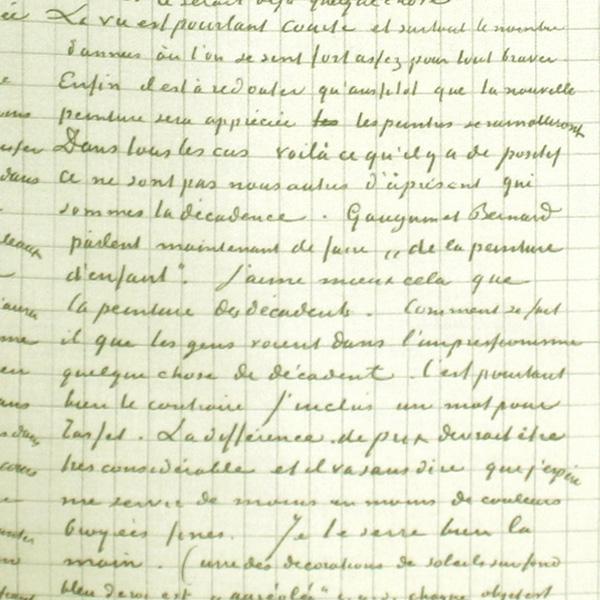 ce serait déjà quelque chose
La vue est pourtant courte et surtout le nombre
d'années où l'on se sent fort assez pour tout braver.
Enfin il est à redouter qu'aussitot que la nouvelle
peinture sera appréciée les peintres se ramolliront
Dans tous les cas voilà ce qu'il y a de positif
ce ne sont pas nous autres d'àprésent qui
sommes la décadence. Gauguin et Bernard
parlent maintenant de faire „de la peinture
d'enfant”. J'aime mieux cela que
la peinture des décadents. Comment se fait
il que les gens voient dans l'impressionisme
quelque chose de décadent. C'est pourtant
bien le contraire J'inclus un mot pour
Tasset. La différence de prix devrait être
très considérable et il va sans dire que j'espère
me servir de moins en moins de couleurs
broyées fines. Je te serre bien la
main. (une des décorations de soleils sur fond
bleu de roi est „auréolée” c.à.d. chaque objet est